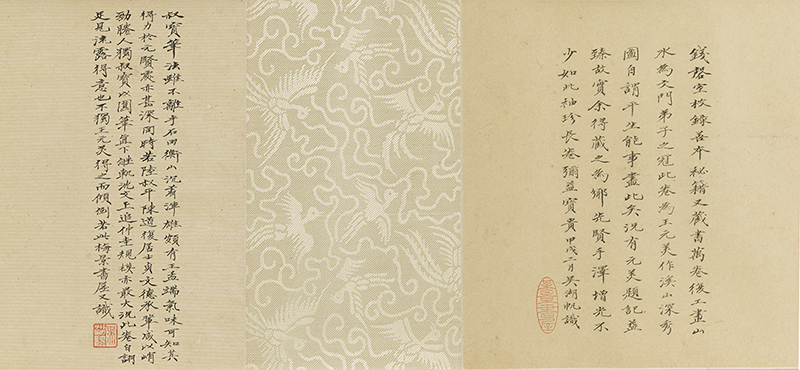 錢磬室校錄善本秘籍又藏書萬卷後工畫山
水為文門弟子之冠此卷為王元美作溪山深秀
圖自謂平生能事盡此矣況有元美題記益
臻故實余得藏之為鄉先賢手澤增光不
少如此袖珍長卷彌益寶貴甲戌二月吳湖帆識
叔寶筆法雖不離乎石田衡山沉著渾雄頗有王孟端氣味可知其
得力於元賢處亦甚深同時若陸叔平陳道復居士貞文德承輩咸以峭
勁勝人獨叔寶以圓筆直下繼軌沈文上追仲圭規模亦最大況此卷自詡
足見流露得意也不獨王元美得之而傾倒若此梅景書屋又識